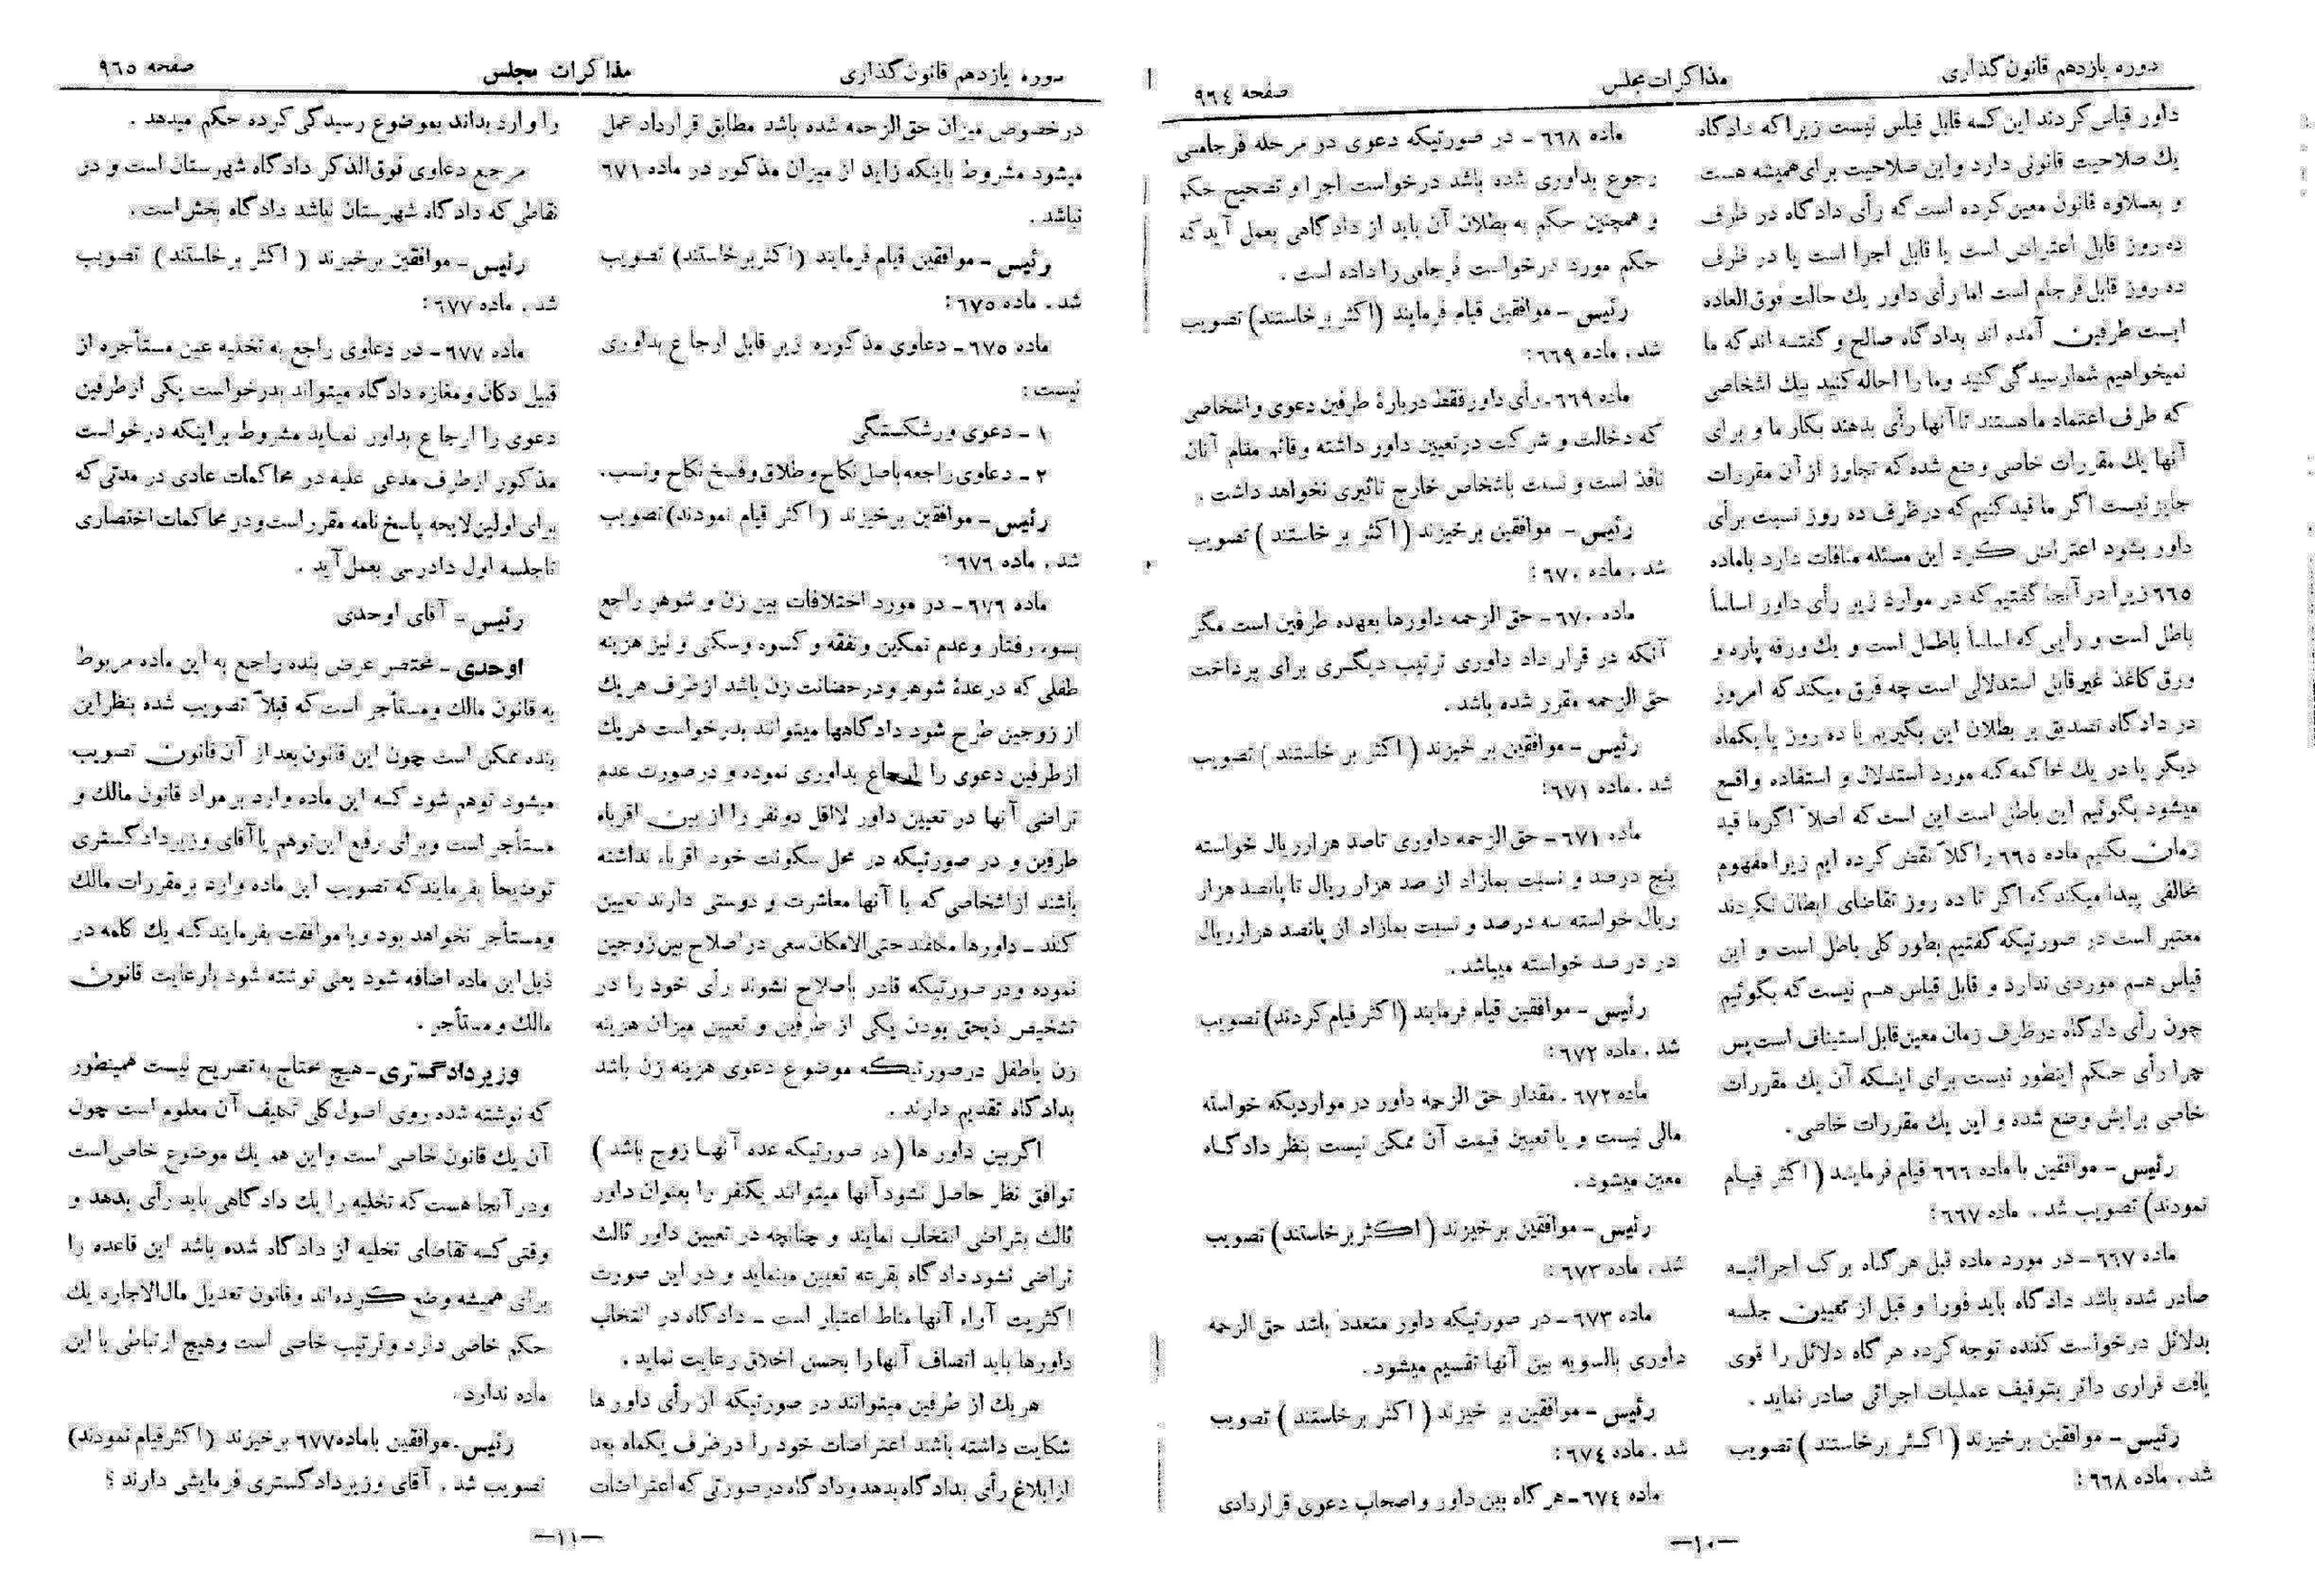 دوره یازدهم قانون گذاری
مذاکرات مجلس
صفحه ٩٦٤
داور قیاس کردند این که قابل قیاس نیست زیرا که دادگاه
یك صلاحیت قانونی دارد و این صلاحیت برای همیشه هست
و بعلاوه قانون معین کرده است که رأی دادگاه در ظرف
ده روز قابل اعتراض است یا قابل اجرا است یا در ظرف
ده روز قابل فرجام است اما رأی داور یك حالت فوق العاده
ایست طرفین آمده اند بدادگاه صالح و گفته اند که ما
نمیخواهیم شما رسیدگی کنید و ما را احاله کنید بیك اشخاصی
که طرف اعتماد ما هستند تا آنها رأی بدهند بکار ما و برای
آنها یك مقررات خاصی وضع شده که تجاوز از آن مقررات
جایز نیست اگر ما قید کنیم که در ظرف ده روز نسبت برأی
داور بشود اعتراض کرد این مسئله منافات دارد با ماده
٦٦٥ زیرا در آنجا گفتیم که در موارد زیر رأی داور اساساً
باطل است و رأیی که اساساً باطل است و یك ورقه پاره و
ورق کاغذ غیر قابل استدلالی است چه فرق میکند که امروز
در دادگاه تصدیق بر بطلان این بگیریم یا ده روز یا یکماه
دیگر یا در یك محاکمه که مورد استدلال و استفاده واقع
میشود بگوئیم این باطل است این است که اصلاً اگر ما قید
زمان بکنیم ماده ٦٦٥ را کلاً نقض کرده ایم زیرا مفهوم
مخالفی پیدا میکند که اگر تا ده روز تقاضای ابطال نکردند
معتبر است در صورتیکه گفتیم بطور کلی باطل است و این
قیاس هم موردی ندارد و قابل قیاس هم نیست که بگوئیم
چون رأی دادگاه در ظرف زمان معین قابل استیناف است پس
چرا رأی حکم اینطور نیست برای اینکه آن یك مقررات
خاصی برایش وضع شده و این یك مقررات خاصی.
رئیس - موافقین با ماده ٦٦٦ قیام فرمایند (اکثر قیام
نمودند) تصویب شد. ماده ٦٦٧:
ماده ٦٦٧ - در مورد ماده قبل هر گاه برك اجرائیه
صادر شده باشد دادگاه باید فوراً و قبل از تعیین جلسه
بدلائل درخواست کننده توجه کرده هر گاه دلائل را قوی
یافت قراری دائر بتوقیف عملیات اجرائی صادر نماید.
رئیس - موافقین برخیزند (اکثر برخاستند) تصویب
شد. ماده ٦٦٨:
ماده ٦٦٨ - در صورتیکه دعوی در مرحله فرجامی
رجوع بداوری شده باشد درخواست اجرا و تصحیح حکم
و همچنین حکم به بطلان آن باید از دادگاهی بعمل آید که
حکم مورد درخواست فرجامی را داده است.
رئیس - موافقین قیام فرمایند (اکثر برخاستند) تصویب
شد. ماده ٦٦٩:
ماده ٦٦٩ - رأی داور فقط دربارهٔ طرفین دعوی و اشخاصی
که دخالت و شرکت در تعیین داور داشته و قائم مقام آنان
نافذ است و نسبت باشخاص خارج تاثیری نخواهد داشت.
رئیس - موافقین برخیزند (اکثر برخاستند) تصویب
شد. ماده ٦٧٠:
ماده ٦٧٠ - حق الزحمه داورها بعهده طرفین است مگر
آنکه در قرار داد داوری ترتیب دیگری برای پرداخت
حق الزحمه مقرر شده باشد.
رئیس - موافقین برخیزند (اکثر برخاستند) تصویب
شد. ماده ٦٧١:
ماده ٦٧١ - حق الزحمه داوری تا صد هزار ریال خواسته
پنج درصد و نسبت بمازاد از صد هزار ریال تا پانصد هزار
ریال خواسته سه درصد و نسبت بمازاد از پانصد هزار ریال
در در صد خواسته میباشد.
رئیس - موافقین قیام فرمایند (اکثر قیام کردند) تصویب
شد. ماده ٦٧٢:
ماده ٦٧٢. مقدار حق الزحمه داور در مواردیکه خواسته
مالی نیست و یا تعیین قیمت آن ممکن نیست بنظر دادگاه
معین میشود.
رئیس - موافقین برخیزند (اکثر برخاستند) تصویب
شد. ماده ٦٧٣:
ماده ٦٧٣ - در صورتیکه داور متعدد باشد حق الزحمه
داوری بالسویه بین آنها تقسیم میشود.
رئیس - موافقین بر خیزند (اکثر برخاستند) تصویب
شد. ماده ٦٧٤:
ماده ٦٧٤ - هر گاه بین داور و اصحاب دعوی قراردادی
-١٠-
دوره یازدهم قانون گذاری
مذاکرات مجلس
صفحه ٩٦٥
در خصوص میزان حق الزحمه شده باشد مطابق قرارداد عمل
میشود مشروط باینکه زاید از میزان مذکور در ماده ٦٧١
نباشد.
رئیس - موافقین قیام فرمایند (اکثر برخاستند) تصویب
شد. ماده ٦٧٥:
ماده ٦٧٥ - دعاوی مذکوره زیر قابل ارجاع بداوری
نیست:
١ - دعوی ورشکستگی
٢ - دعاوی راجعه باصل نکاح و طلاق و فسخ نکاح و نسب.
رئیس - موافقین برخیزند (اکثر قیام نمودند) تصویب
شد. ماده ٦٧٦:
ماده ٦٧٦ - در مورد اختلافات بین زن و شوهر راجع
بسوء رفتار و عدم تمکین و نفقه و کسوه و سکنی و نیز هزینه
طفلی که در عدهٔ شوهر و در حضانت زن باشد از طرف هر یك
از زوجین طرح شود دادگاهها میتوانند بدرخواست هر یك
از طرفین دعوی را ارجاع بداوری نموده و در صورت عدم
تراضی آنها در تعیین داور لااقل دو نفر را از بین اقرباء
طرفین و در صورتیکه در محل سکونت خود اقرباء نداشته
باشند از اشخاصی که با آنها معاشرت و دوستی دارند تعیین
کنند - داورها مکلفند حتی الامکان سعی در اصلاح بین زوجین
نموده و در صورتیکه قادر باصلاح نشوند رأی خود را در
تشخیص ذیحق بودن یکی از طرفین و تعیین میزان هزینه
زن یا طفل در صورتیکه موضوع دعوی هزینه زن باشد
بدادگاه تقدیم دارند.
اگر بین داور ها (در صورتیکه عده آنها زوج باشد)
توافق نظر حاصل نشود آنها میتوانند یکنفر را بعنوان داور
ثالث بتراضی انتخاب نمایند و چنانچه در تعیین داور ثالث
تراضی نشود دادگاه بقرعه تعیین مینماید و در این صورت
اکثریت آراء آنها مناط اعتبار است - دادگاه در انتخاب
داورها باید اتصاف آنها را بحسن اخلاق رعایت نماید.
هر یك از طرفین میتوانند در صورتیکه از رأی داور ها
شکایت داشته باشند اعتراضات خود را در ظرف یکماه بعد
از ابلاغ رأی بدادگاه بدهد و دادگاه در صورتی که اعتراضات
را وارد بداند بموضوع رسیدگی کرده حکم میدهد.
مرجع دعاوی فوق الذکر دادگاه شهرستان است و در
نقاطی که دادگاه شهرستان نباشد دادگاه بخش است.
رئیس - موافقین برخیزند (اکثر برخاستند) تصویب
شد. ماده ٦٧٧:
ماده ٦٧٧ - در دعاوی راجع به تخلیه عین مستأجره از
قبیل دکان و مغازه دادگاه میتواند بدرخواست یکی از طرفین
دعوی را ارجاع بداور نماید مشروط براینکه درخواست
مذکور از طرف مدعی علیه در محاکمات عادی در مدتی که
برای اولین لایحه پاسخ نامه مقرر است و در محاکمات اختصاری
تا جلسه اول دادرسی بعمل آید.
رئیس - آقای اوحدی
اوحدی - مختصر عرض بنده راجع به این ماده مربوط
به قانون مالك و مستأجر است که قبلاً تصویب شده بنظر این
بنده ممکن است چون این قانون بعد از آن قانون تصویب
میشود توهم شود که این ماده وارد بر مواد قانون مالك و
مستأجر است و برای رفع این توهم یا آقای وزیر دادگستری
توضیحاً بفرمایند که تصویب این ماده وارد بر مقررات مالك
و مستأجر نخواهد بود و یا موافقت بفرمایند که یك کلمه در
ذیل این ماده اضافه شود یعنی نوشته شود با رعایت قانون
مالك و مستأجر.
وزیر دادگستری - هیچ محتاج به تصریح نیست همینطور
که نوشته شده روی اصول کلی تکلیف آن معلوم است چون
آن یك قانون خاصی است و این هم یك موضوع خاصی است
و در آنجا هست که تخلیه را یك دادگاهی باید رأی بدهد و
وقتی که تقاضای تخلیه از دادگاه شده باشد این قاعده را
برای همیشه وضع کرده اند و قانون تعدیل مال الاجاره یك
حکم خاصی دارد و ترتیب خاصی است و هیچ ارتباطی با این
ماده ندارد.
رئیس. موافقین با ماده ٦٧٧ برخیزند (اکثر قیام نمودند)
تصویب شد. آقای وزیر دادگستری فرمایشی دارند؟
-١١-